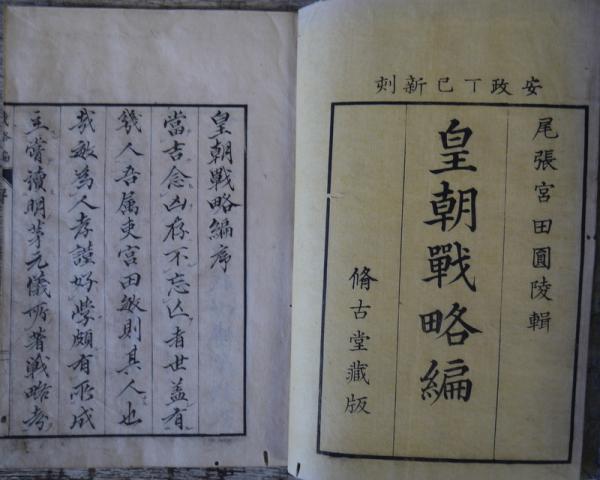 安政丁巳新刻
尾張宮田圓陵輯
皇朝戰略編
脩古堂藏版
皇朝戰略編序
當吉念凶存不忘亡者世蓋有
幾人吾属吏宮田敏則其人也
哉敏為人孝謹好學頗有所成
主嘗讀明茅元儀所著戰略考